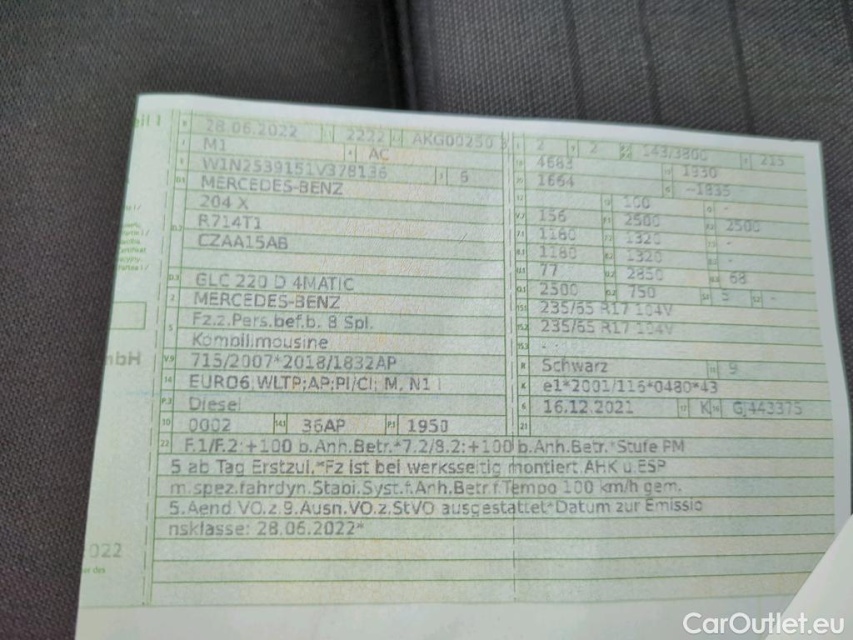 28.06.2022 2222 AKG00250 3 2 2 143/3800 215
M1 AC 4683 1930
W1N2539151V378136 6 1664 -1835
MERCEDES-BENZ 100 -
204 X 156 2500 2500
R714T1 1180 1320 -
CZAA15AB 1180 1320 -
77 2850 68
GLC 220 D 4MATIC 2500 750 5 -
MERCEDES-BENZ 235/65 R17 104V
Fz.z.Pers.bef.b. 8 Spl. 235/65 R17 104V
Kombilimousine -
715/2007*2018/1832AP Schwarz 9
EURO6 WLTP;AP;PI/CI; M, N1 I e1*2001/116*0480*43
Diesel 16.12.2021 K G,443375
0002 36AP 1950
F.1/F.2:+100 b.Anh.Betr.*7.2/8.2:+100 b.Anh.Betr.*Stufe PM
5 ab Tag Erstzul.*Fz ist bei werksseitig montiert.AHK u.ESP
m.spez.fahrdyn.Stabi.Syst.f.Anh.Betr.f.Tempo 100 km/h gem.
5.Aend.VO.z.9.Ausn.VO.z.StVO ausgestattet*Datum zur Emissio
nsklasse: 28.06.2022*
022
CarOutlet.eu